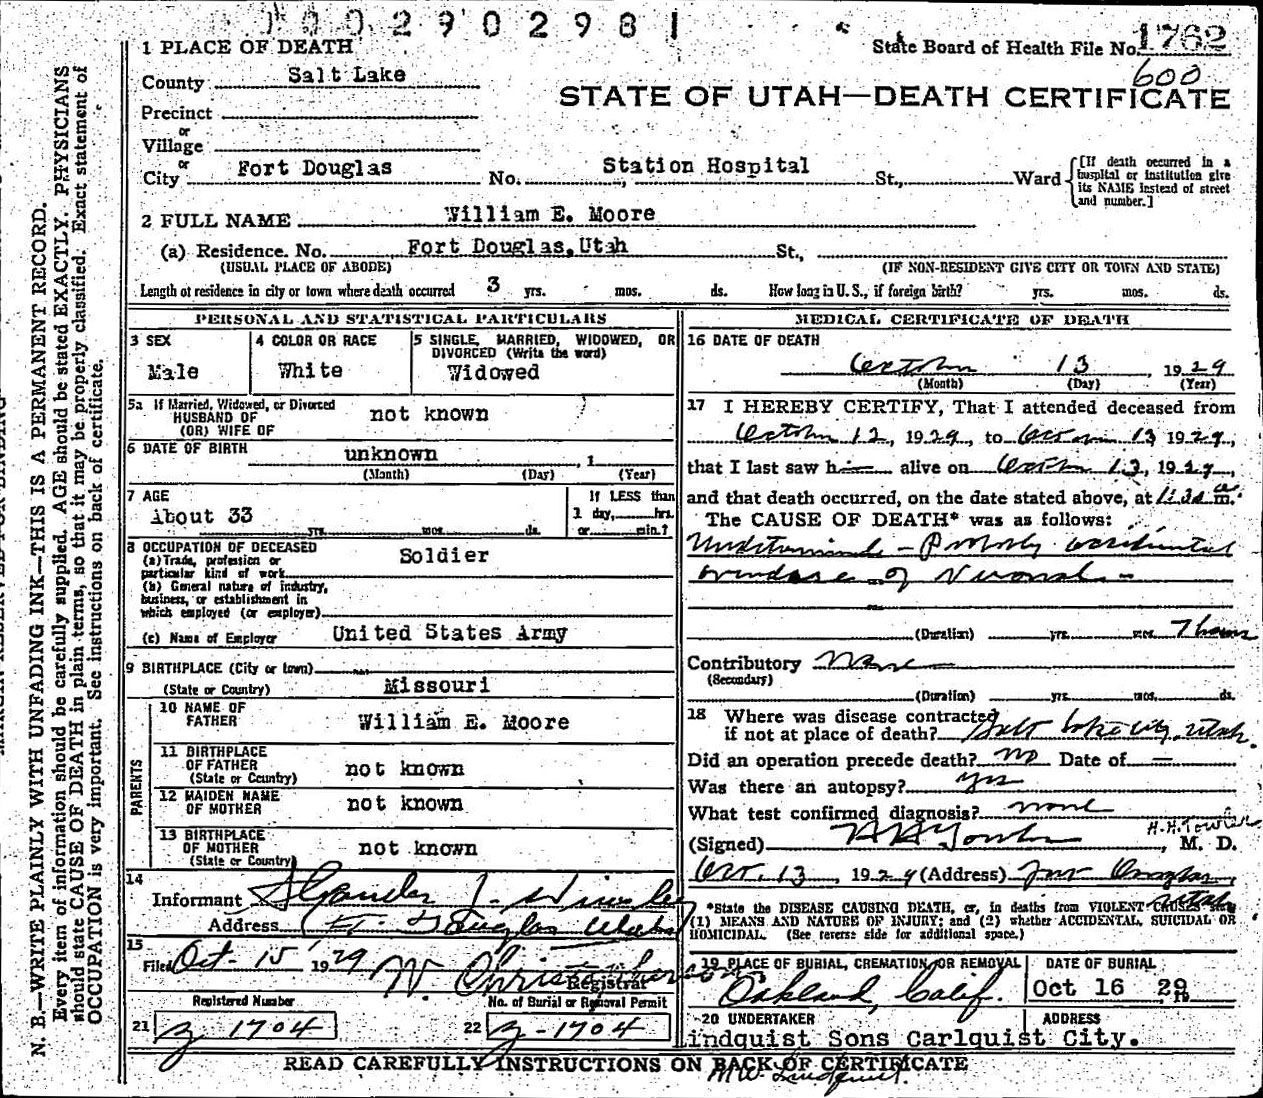 0002902981
1 PLACE OF DEATH
State Board of Health File No. 1762
600
County Salt Lake
STATE OF UTAH—DEATH CERTIFICATE
Precinct
or
Village
or
City Fort Douglas No. Station Hospital St., Ward
[If death occurred in a
hospital or institution give
its NAME instead of street
and number.]
2 FULL NAME William E. Moore
(a) Residence. No. Fort Douglas, Utah St.,
(USUAL PLACE OF ABODE) (IF NON-RESIDENT GIVE CITY OR TOWN AND STATE)
Length of residence in city or town where death occurred 3 yrs. mos. ds. How long in U. S., if foreign birth? yrs. mos. ds.
PERSONAL AND STATISTICAL PARTICULARS
3 SEX
Male
4 COLOR OR RACE
White
5 SINGLE, MARRIED, WIDOWED, OR
DIVORCED (Write the word)
Widowed
5a If Married, Widowed, or Divorced
HUSBAND OF
(OR) WIFE OF
not known
6 DATE OF BIRTH unknown , 1
(Month) (Day) (Year)
7 AGE
About 33
yrs. mos. ds.
If LESS than
1 day, hrs.
or min.?
8 OCCUPATION OF DECEASED
(a) Trade, profession or
particular kind of work Soldier
(b) General nature of industry,
business, or establishment in
which employed (or employer)
(c) Name of Employer United States Army
9 BIRTHPLACE (City or town)
(State or Country) Missouri
PARENTS
10 NAME OF
FATHER William E. Moore
11 BIRTHPLACE
OF FATHER
(State or Country) not known
12 MAIDEN NAME
OF MOTHER not known
13 BIRTHPLACE
OF MOTHER
(State or Country) not known
14
Informant
Address Ft. Douglas Utah
15
Filed Oct- 15 1929 W. Christopherson
Registrar
Registered Number
21 z 1704
No. of Burial or Removal Permit
22 z-1704
MEDICAL CERTIFICATE OF DEATH
16 DATE OF DEATH
October 13, 1929
(Month) (Day) (Year)
17 I HEREBY CERTIFY, That I attended deceased from
October 12, 1929, to October 13 1929,
that I last saw him alive on October 13, 1929,
and that death occurred, on the date stated above, at m.
The CAUSE OF DEATH* was as follows:
Undetermined - Probably accidental
overdose of Veronal -
(Duration) yrs. mos. 7 hours
Contributory None
(Secondary)
(Duration) yrs. mos. ds.
18 Where was disease contracted
if not at place of death? Salt Lake City, Utah.
Did an operation precede death? no Date of —
Was there an autopsy? yes
What test confirmed diagnosis? none
H.H. Towler
(Signed) H H Towler, M. D.
Oct. 13, 1929 (Address) Fort Douglas,
Utah
*State the DISEASE CAUSING DEATH, or, in deaths from VIOLENT CAUSES, state
(1) MEANS AND NATURE OF INJURY; and (2) whether ACCIDENTAL, SUICIDAL OR
HOMICIDAL. (See reverse side for additional space.)
19 PLACE OF BURIAL, CREMATION, OR REMOVAL
Oakland, Calif.
DATE OF BURIAL
Oct 16 29
20 UNDERTAKER ADDRESS
indquist Sons Carlquist City.
READ CAREFULLY INSTRUCTIONS ON BACK OF CERTIFICATE
N. B.—WRITE PLAINLY WITH UNFADING INK—THIS IS A PERMANENT RECORD.
Every item of information should be carefully supplied. AGE should be stated EXACTLY. PHYSICIANS
should state CAUSE OF DEATH in plain terms, so that it may be properly classified. Exact statement of
OCCUPATION is very important. See instructions on back of certificate.